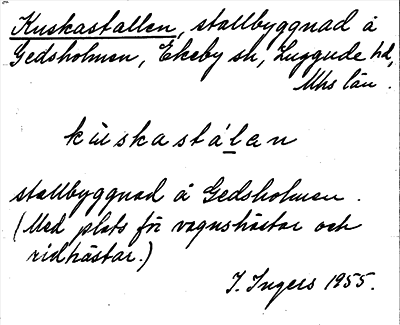 Kuskastallen, stallbyggnad å
Gedsholmen, Ekeby sn, Luggude hd,
Mhs län.
kùskastálan
stallbyggnad å Gedsholmen.
(Med plats för vagnshästar och
ridhästar.)
I. Ingers 1955.